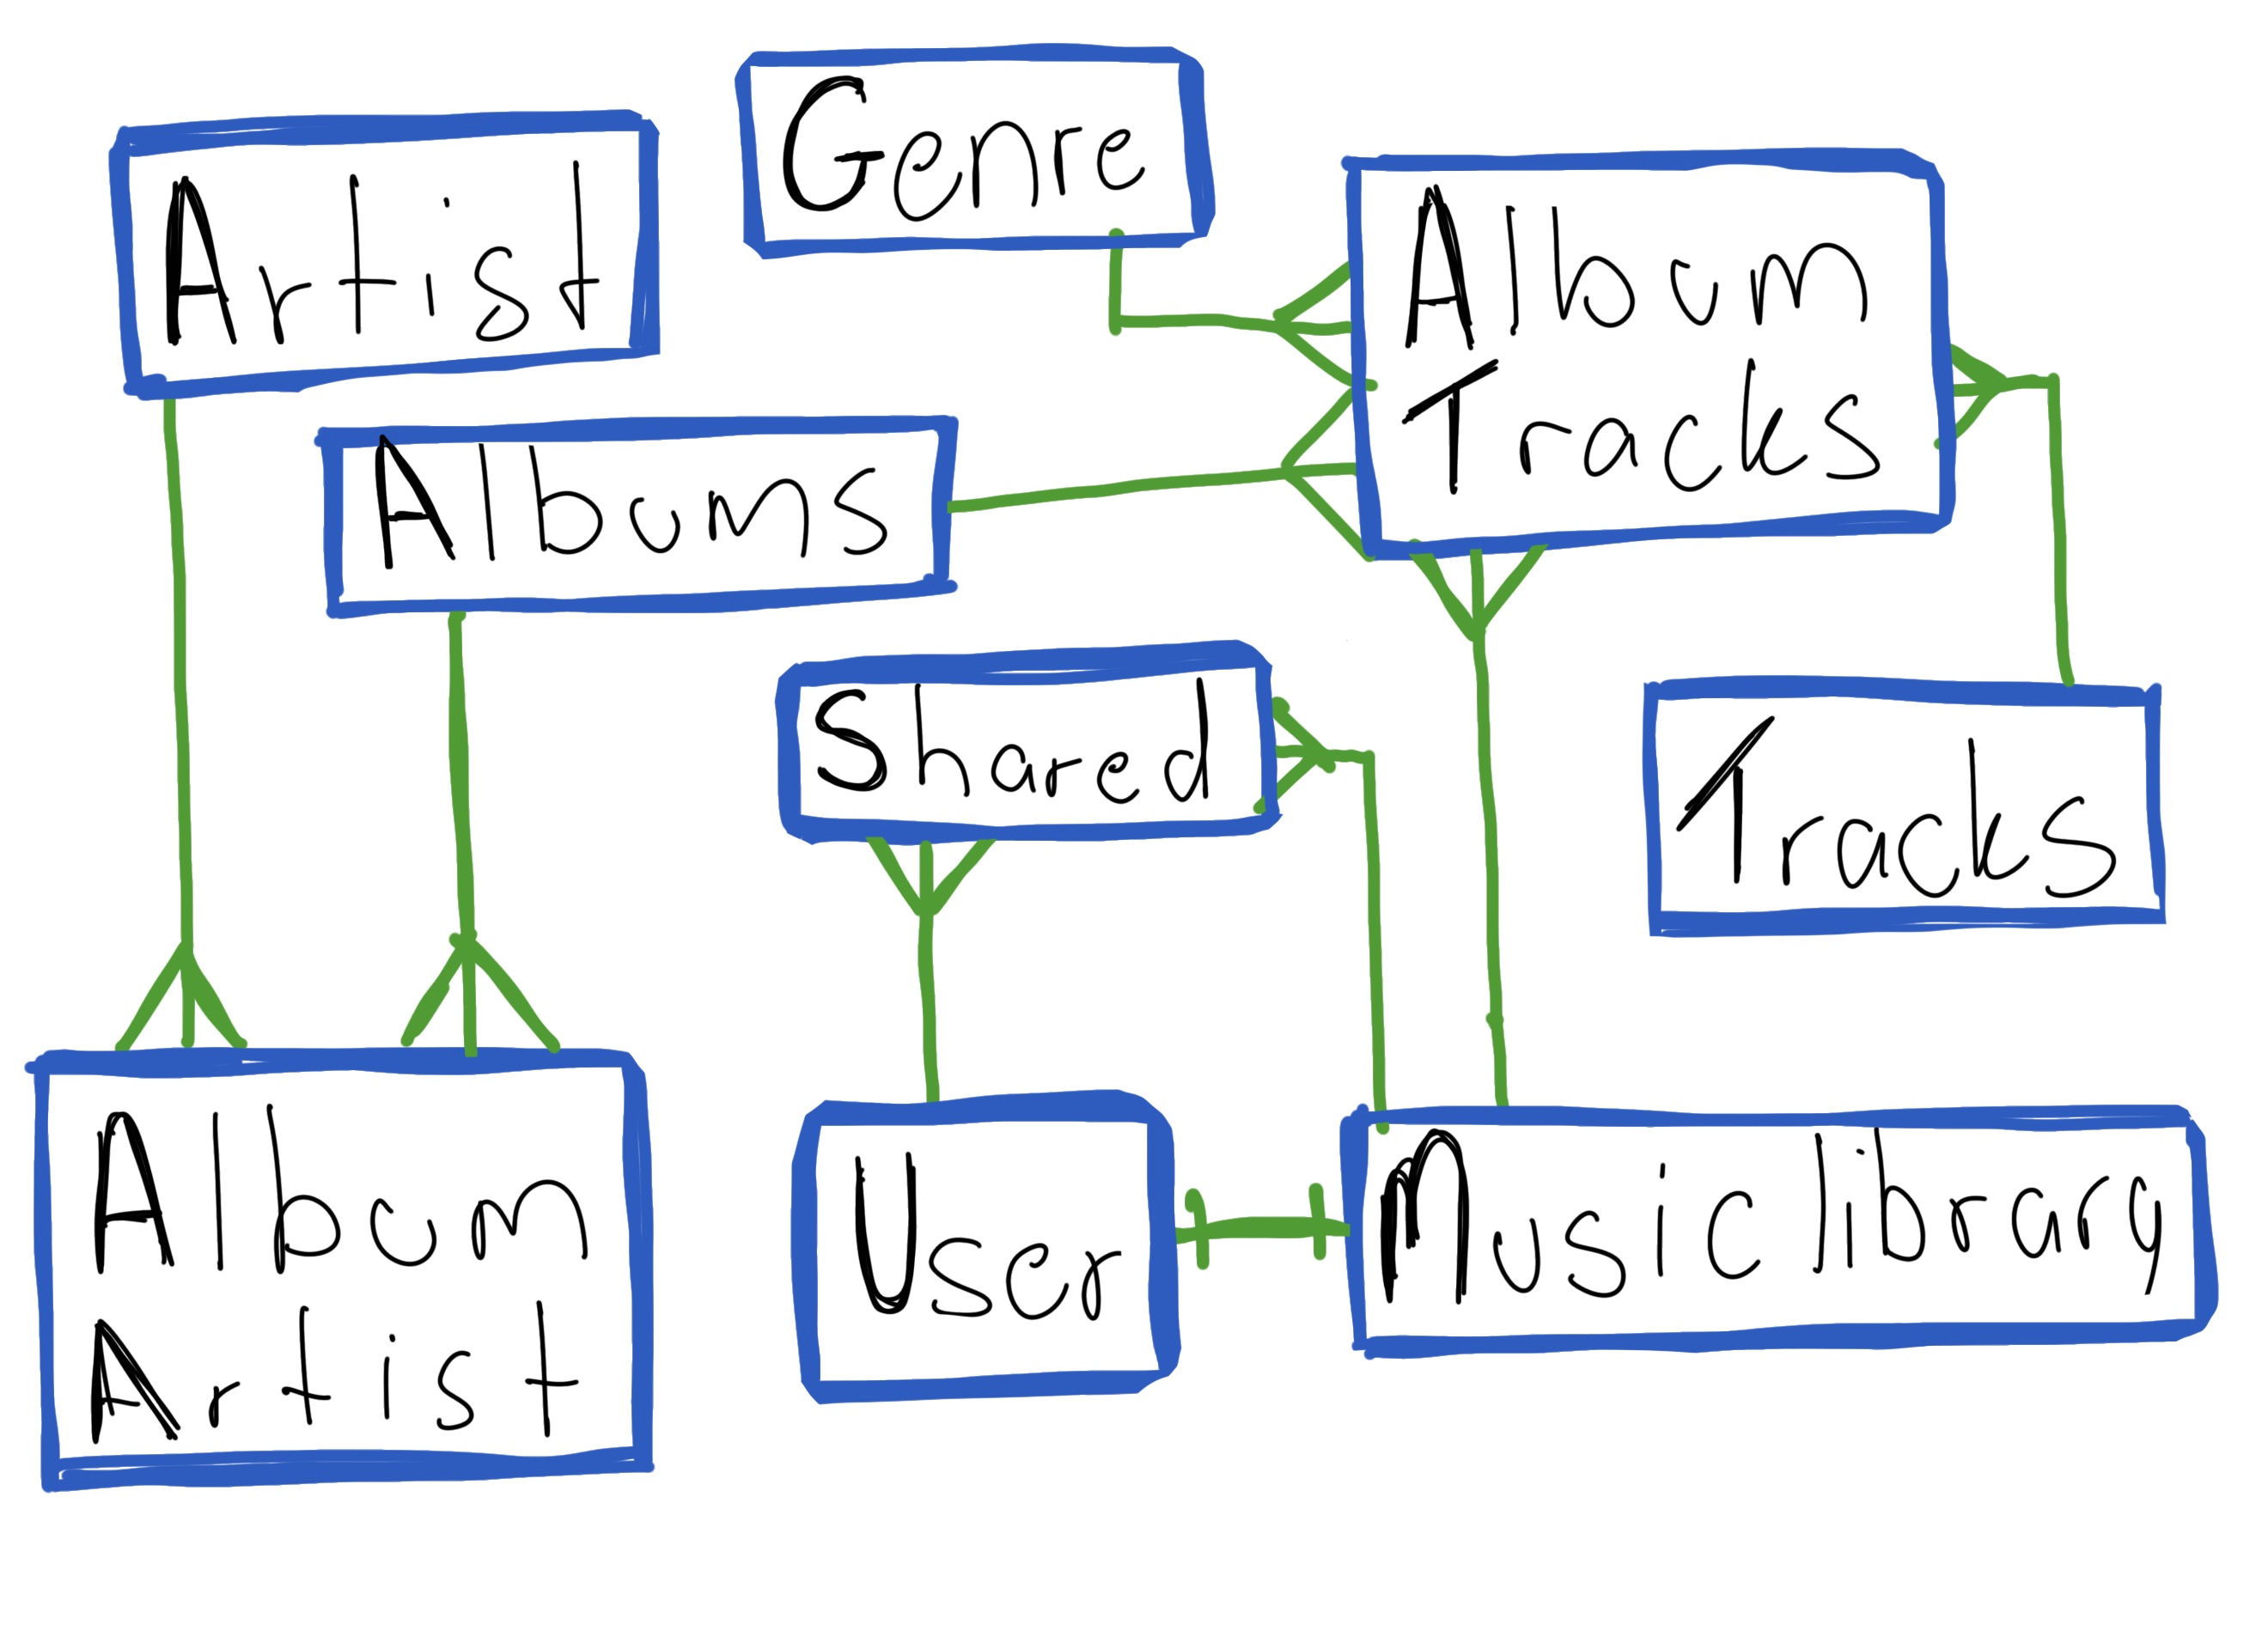 Genre
Artist
Album
Tracks
Albums
Shared
Tracks
Album
Artist
User
Music library